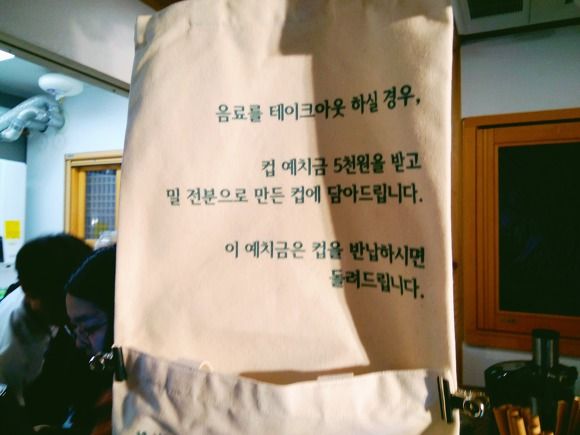 음료를 테이크아웃 하실 경우,
컵 예치금 5천원을 받고
밀 전분으로 만든 컵에 담아드립니다.
이 예치금은 컵을 반납하시면
돌려드립니다.